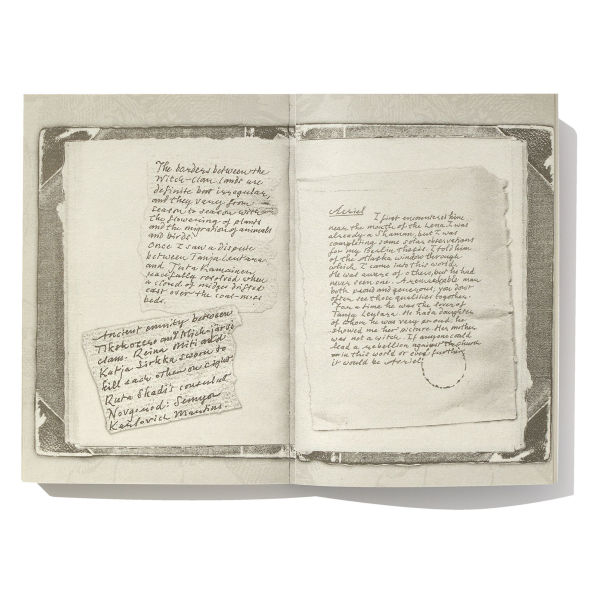 The borders between the
Witch-clan lands are
definite but irregular,
and they vary from
season to season with
the flowering of plants
and the migration of animals
and birds.
Once I saw a dispute
between Tanja Lentara
and Juta Kamainen
peacefully resolved when
a cloud of midges drifted
east over the cloud-moss
beds.
Ancient enmity between
Tikohozero and Miekojärvi
clans. Reina Miti and
Katja Sirkka sworn to
kill each other on sight
Ruta Skadi's consul at
Novgorod: Semyon
Karlovich Martins.
Aeriel I first encountered him
near the mouth of the Lena. I was
already a Shaman, but I was
completing some solar observations
for my Berlin thesis. I told him
of the Alaska window through
which I came into this world.
He was aware of others, but he had
never seen one. A remarkable man
both proud and generous; you don't
often see those qualities together.
For a time he was the lover of
Tanja Lentara. He had a daughter
of whom he was very proud; he
showed me her picture. Her mother
was not a witch. If anyone could
lead a rebellion against the church
in this world or even further
it would be Aeriel.